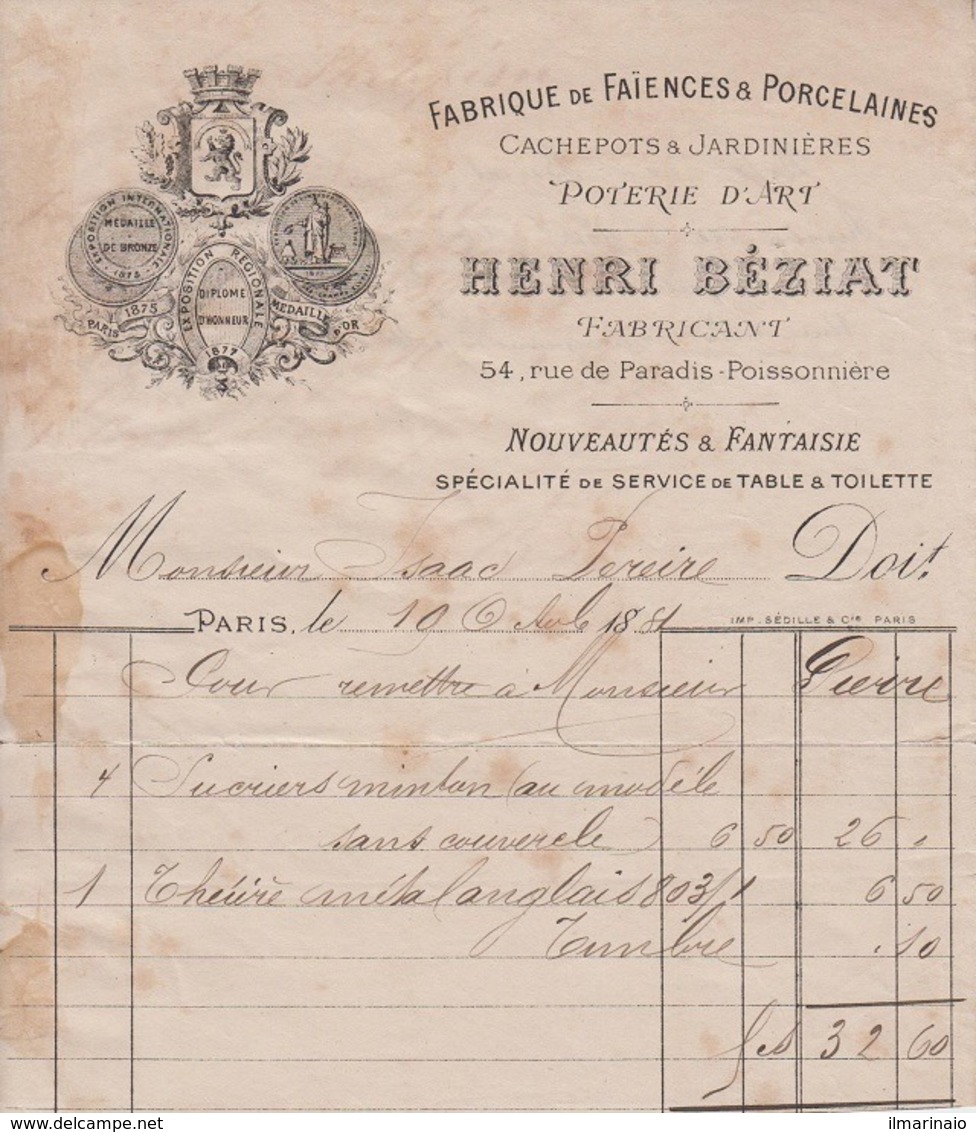 FABRIQUE DE FAÏENCES & PORCELAINES
CACHEPOTS & JARDINIÈRES
POTERIE D'ART
HENRI BÉZIAT
FABRICANT
54, rue de Paradis-Poissonnière
NOUVEAUTÉS & FANTAISIE
SPÉCIALITÉ DE SERVICE DE TABLE & TOILETTE
EXPOSITION INTERNATIONALE
MÉDAILLE
DE BRONZE
1875
PARIS 1875
EXPOSITION REGIONALE
DIPLOME
D'HONNEUR
1877
MEDAILLE D'OR
Monsieur Isaac Pereire Doit
PARIS, le 19 Octobe 1881
IMP. SÉDILLE & Cie PARIS
Pour remettre à Monsieur Pierre
4 Sucriers minton (au modèle
sans couvercle) 6 50 26 "
1 Théière métal anglais 803/1 6 50
Timbre . 10
fcs 32 60
www.delcampe.net
ilmarinaio